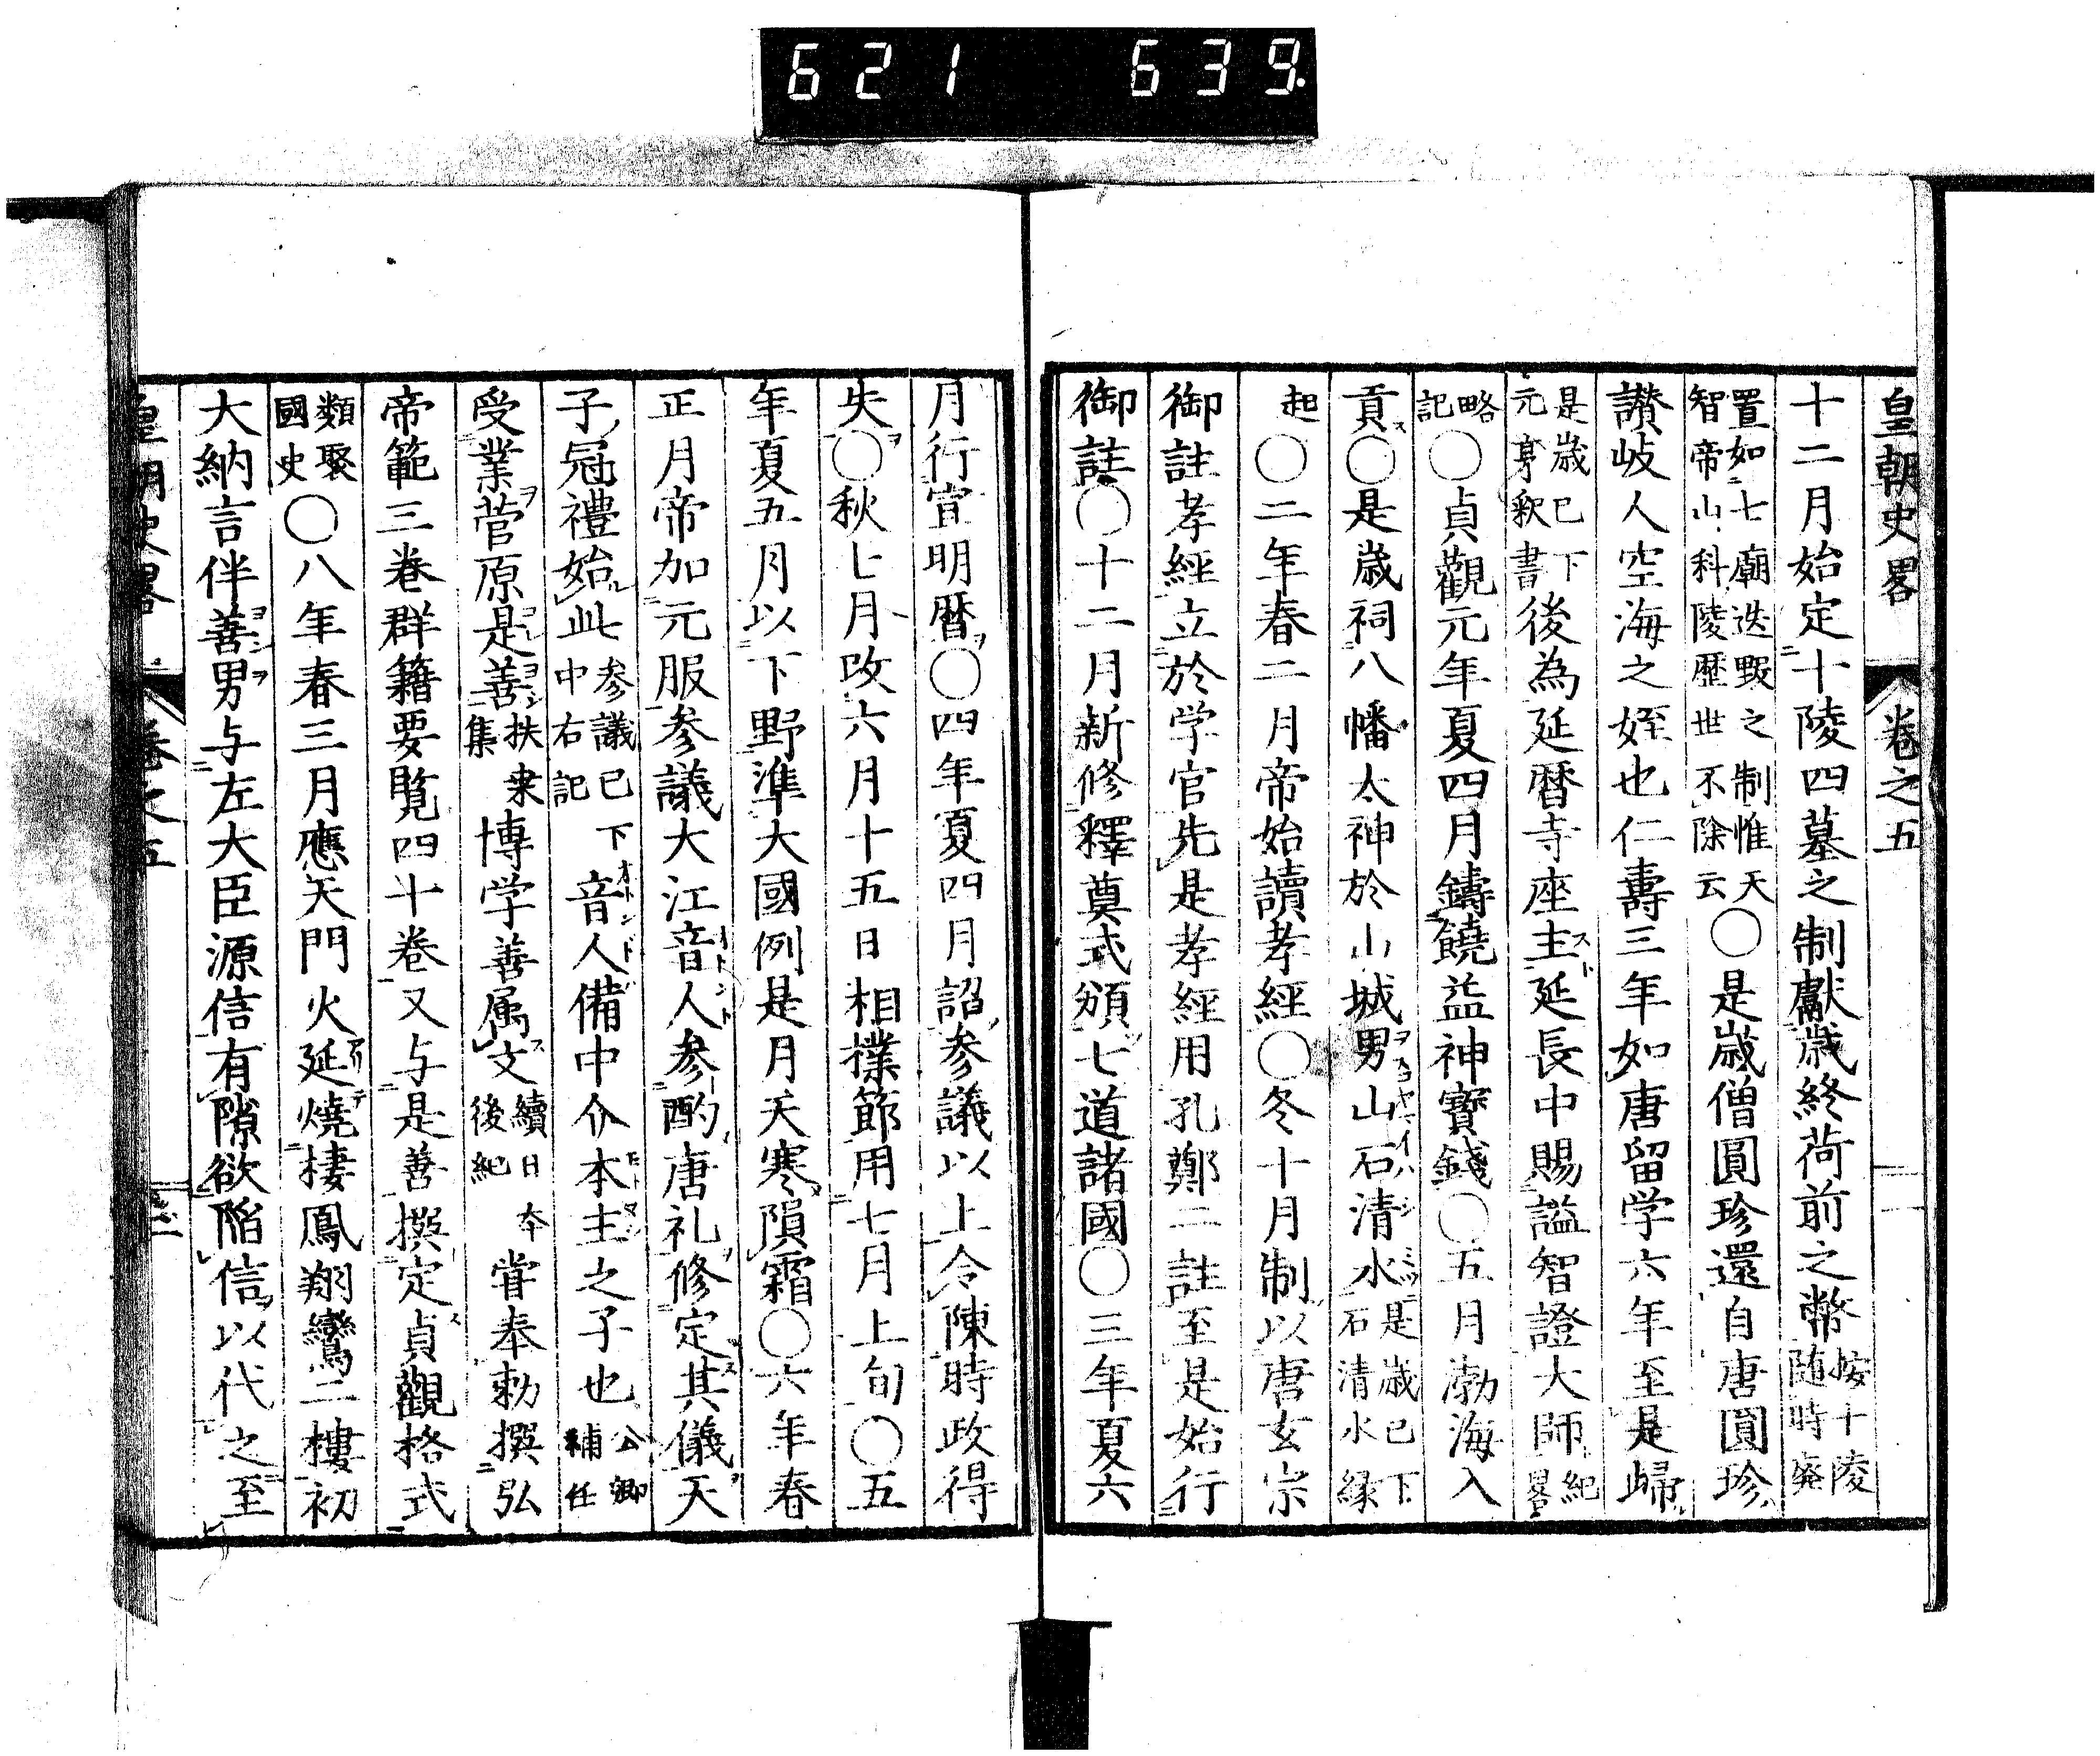 621 639.
皇朝史畧 卷之五
十二月始定十陵四墓之制獻歳終荷前之幣按十陵随時廃
置如七廟迭毀之制惟天智帝山科陵歴世不除云〇是歳僧圓珍還自唐圓珍
讃岐人空海之姪也仁壽三年如唐留学六年至是歸
是歳已下元亨釈書後為延暦寺座主延長中賜謚智證大師紀畧
略記〇貞觀元年夏四月鑄饒益神寳錢〇五月渤海入
貢〇是歳祠八幡太神於山城男山石清水是歳已下石清水縁
起〇二年春二月帝始讀孝經〇冬十月制以唐玄宗
御註孝經立於学官先是孝經用孔鄭二註至是始行
御註〇十二月新修釋奠式頒七道諸國〇三年夏六
月行宣明暦〇四年夏四月詔参議以上令陳時政得
失〇秋七月改六月十五日相撲節用七月上旬〇五
年夏五月以下野準大國例是月天寒隕霜〇六年春
正月帝加元服参議大江音人参酌唐礼修定其儀天
子冠禮始此参議已下中右記音人備中介本主之子也公卿補任
受業菅原是善扶桒集博学善属文續日本後紀甞奉勅撰弘
帝範三巻群籍要覧四十巻又与是善撰定貞觀格式
類聚國史〇八年春三月應天門火延燒棲鳳翔鸞二樓初
大納言伴善男与左大臣源信有隙欲陥信以代之至
皇朝史畧 卷之五